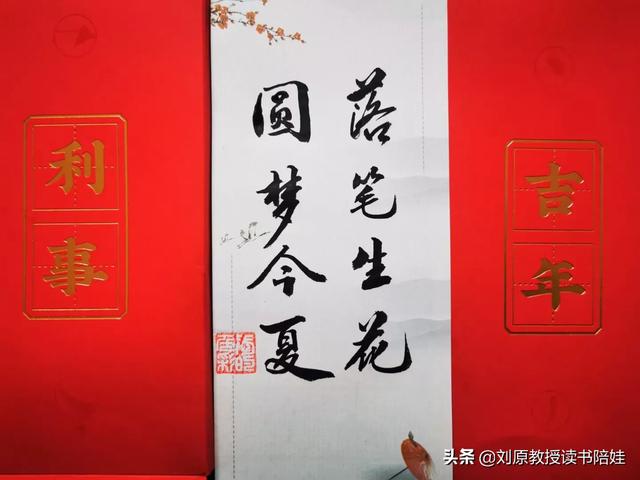 落笔生花
圆梦今夏
吉年
利事
头条 @刘原教授读书陪娃